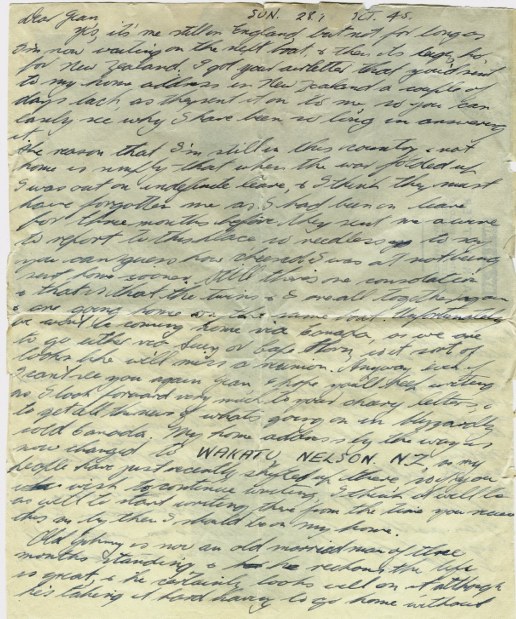 Dear Jean, SUN. 28th OCT. 45.
Yes, it's me still in England but not for long as
I'm now waiting on the next boat & then its
for New Zealand. I got your airletter that you'd sent
to my home address in New Zealand a couple of
days back as they sent it on to me, so you can
easily see why I have been so long in answering
it.
The reason that I'm still in this country & not
home is simply that when the war folded up
I was out on indefinite leave, & I think they must
have forgotten me as I had been on leave
for three months before they sent me a wire
to report to this place so needless to say
you can guess how cheesed I was at not being
sent home sooner. Still there's one consolation
& that is that the twins & I are all together again
& are going home on the same boat. Unfortunately
we won't be coming home via Canada, as we are
to go either via Suez or Cape Horn, so it sort of
looks like we'll miss a reunion. Anyway even if
I can't see you again Jean I hope you'll keep writing
as I look forward very much to your cheery letters, &
to get all the news of what's going on in
cold Canada. My home address by the way is
now changed to WAKATU NELSON. N.Z. as my
people have just recently shifted up there, so if you
wish to continue writing, I think it will be
as well to start writing there from the time you receive
this as by then I should be on my home.
Old Johnny is now an old married man of three
months standing & he reckons the life
is great, & he certainly looks well on it although
he's taking it hard having to go home without